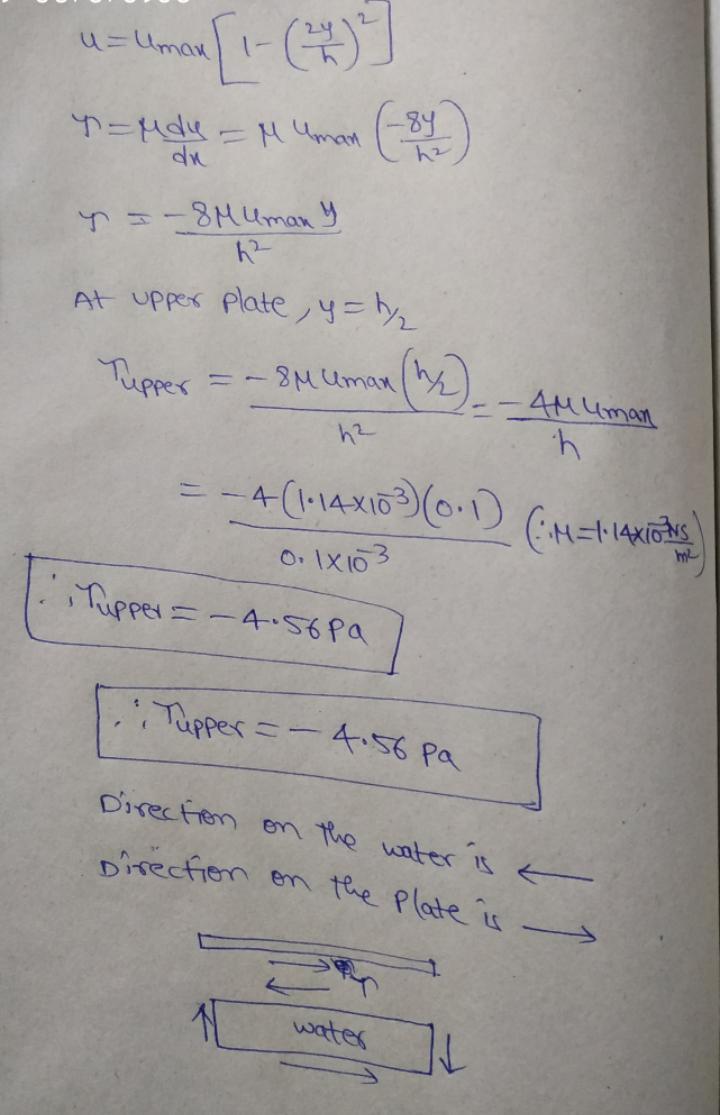 u = umax [1 - (2y/h)²]
τ = μ du/dx = μ umax (-8y/h²)
τ = -8μ umax y / h²
At upper plate, y = h/2
τupper = -8μ umax (h/2) / h² = -4μ umax / h
= -4(1.14×10⁻³)(0.1) / 0.1×10⁻³ (∵ μ = 1.14×10⁻³ NS/m²)
∴ τupper = -4.56 Pa
∴ τupper = -4.56 Pa
Direction on the water is ←
Direction on the plate is →
τ
water